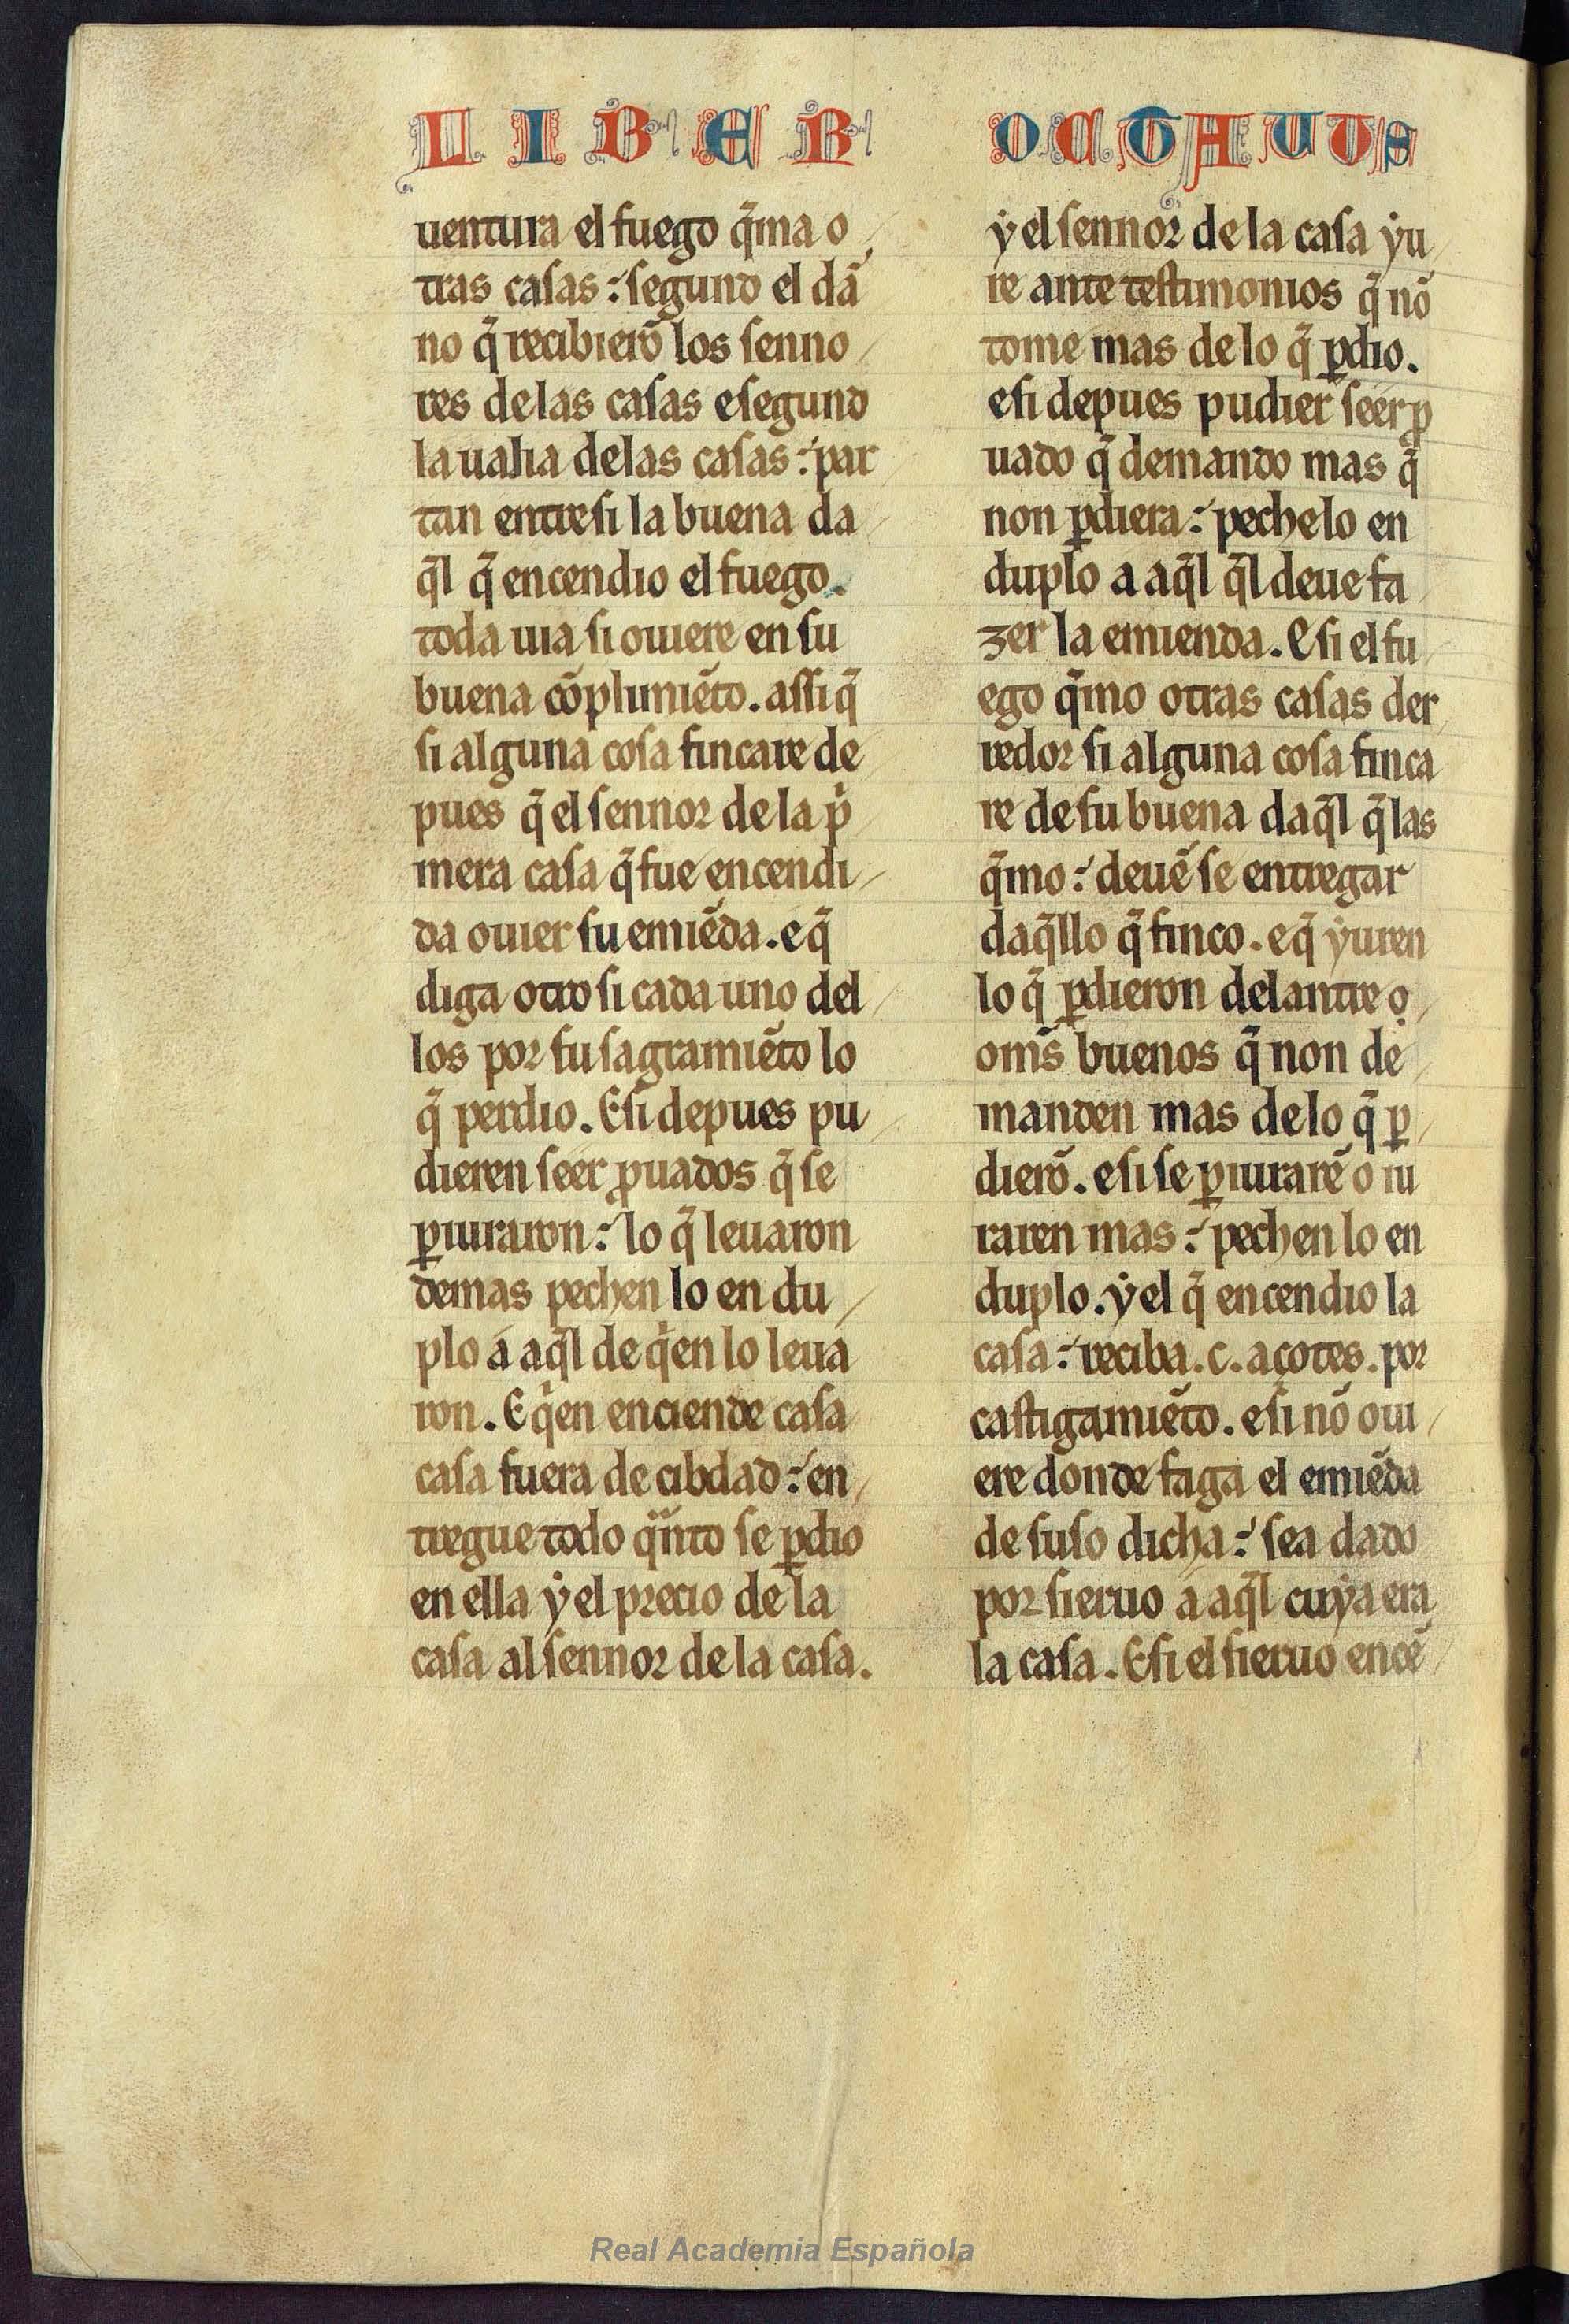 LIBER OCTAUUS
uentura el fuego q̃ma o
tras casas : segund el dã
no q̃ recibierõ los senno
res delas casas e segund
la ualia delas casas : par
tan entresi la buena da
q̃l q̃ encendio el fuego.
toda uia si ouiere en su
buena cõplimiẽto. assi q̃
si alguna cosa fincare de
pues q̃ el sennor de la pͥ
mera casa q̃ fue encendi
da ouier su emiẽda. e q̃
diga otrosi cada uno del
los por su sagramiẽto lo
q̃ perdio. E si depues pu
dieren seer ꝓuados q̃ se
ꝑiuraron : lo q̃ leuaron
demas pechen lo en du
plo a aq̃l de qͥen lo leua
ron. E qͥen enciende casa
casa fuera de cibdad : en
tregue todo qͣnto se ꝑdio
en ella ẏ el precio de la
casa al sennor de la casa.
ẏ el sennor de la casa ẏu
re ante testimonios q̃ nõ
tome mas de lo q̃ ꝑdio.
e si depues pudier seer ꝓ
uado q̃ demando mas q̃
non ꝑdiera : pechelo en
duplo a aq̃l q̃l deue fa
zer la emienda. E si el fu
ego q̃mo otras casas der
redor si alguna cosa finca
re de su buena daq̃l q̃ las
q̃mo : deuẽ se entregar
daq̃llo q̃ finco. e q̃ ẏuren
lo q̃ ꝑdieron delantre o
om̃s buenos q̃ non de
manden mas de lo q̃ ꝑ
dierõ. e si se ꝑiurarẽ o iu
raren mas : pechen lo en
duplo. ẏ el q̃ encendio la
casa : reciba .c. açotes. por
castigamiẽto. e si nõ oui
ere donde faga el emiẽda
de suso dicha : sea dado
por sieruo a aq̃l cuẏa era
la casa. E si el sieruo encẽ
Real Academia Española